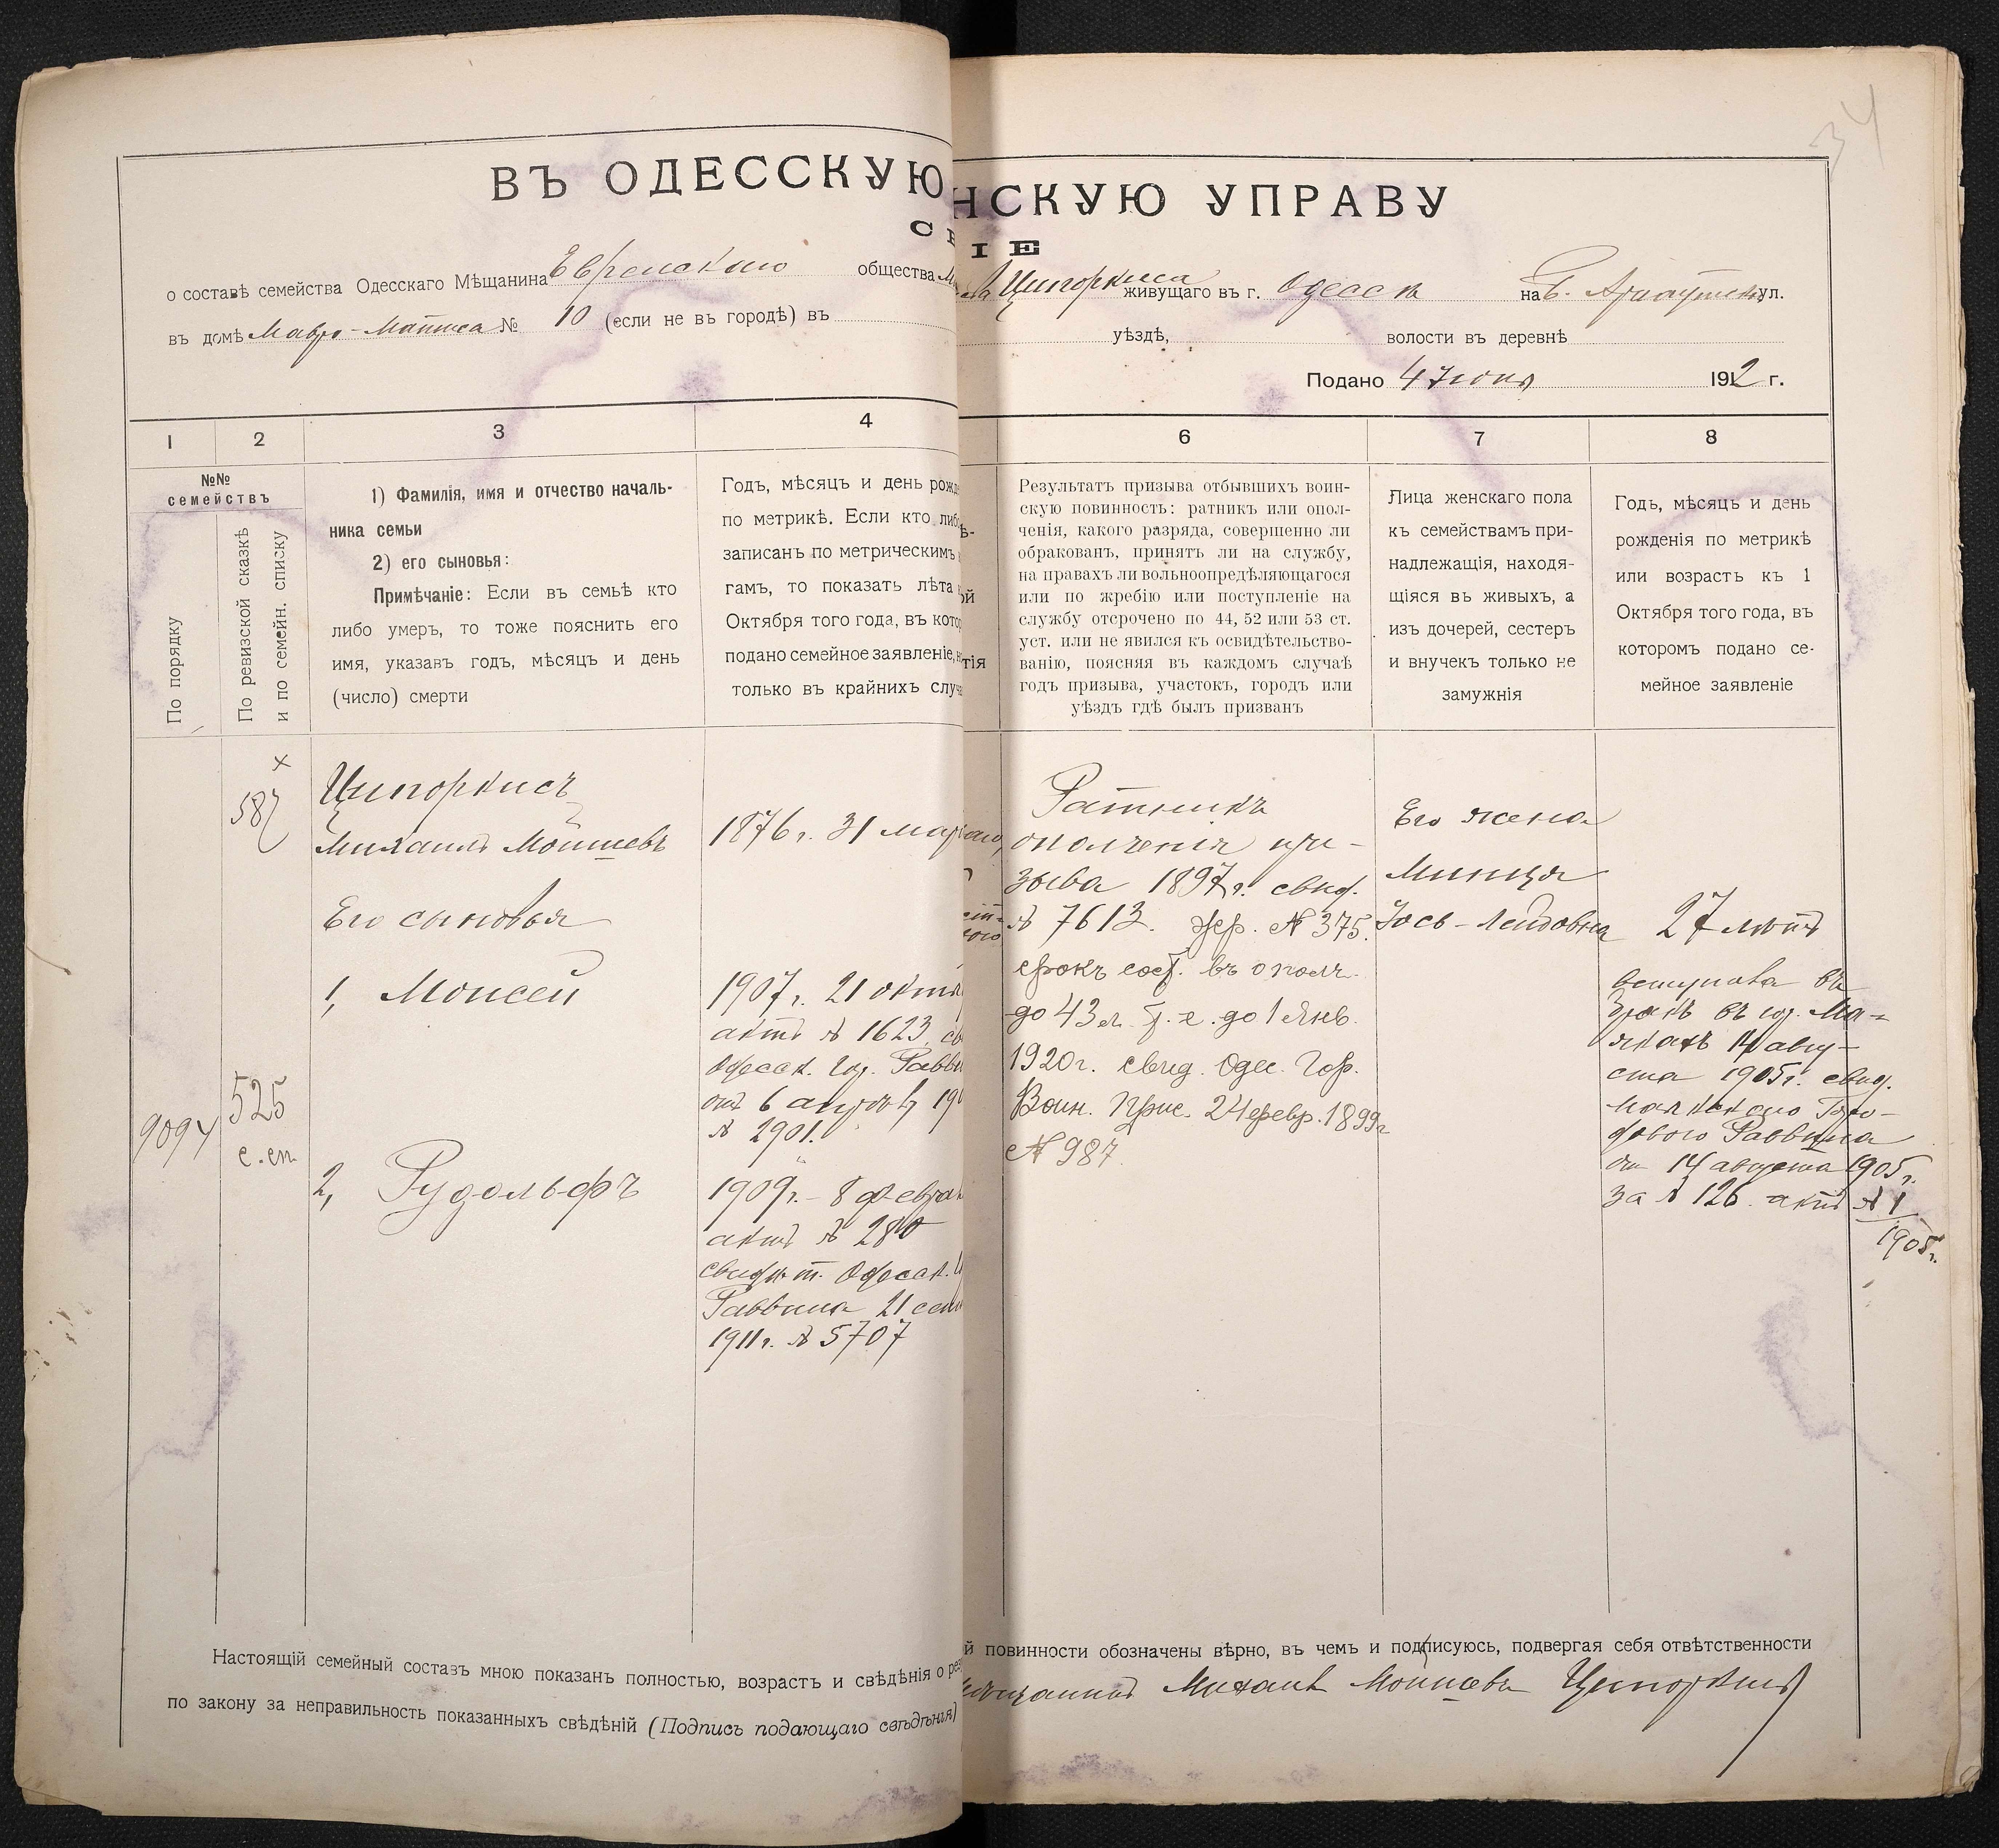 34
ВЪ ОДЕССКУЮ
НСКУЮ УПРАВУ
С
ІЕ
о составѣ семейства Одесскаго Мѣщанина Еврейскаго общества
Ципоркиса живущаго въ г. Одессѣ на Б. Арнаутской ул.
въ домѣ Мавро-Матиса № 10 (если не въ городѣ) въ
уѣздѣ, волости въ деревнѣ
Подано 4 Іюня 1912 г.
1 2 3 4
6 7 8
№№
семействъ
По порядку
По ревизской сказкѣ
и по семейн. списку
1) Фамилія, имя и отчество началь-
ника семьи
2) его сыновья:
Примѣчаніе: Если въ семьѣ кто
либо умеръ, то тоже пояснить его
имя, указавъ годъ, мѣсяцъ и день
(число) смерти
Годъ, мѣсяцъ и день рожд
по метрикѣ. Если кто либ
записанъ по метрическимъ
гамъ, то показать лѣта
Октября того года, въ кото
подано семейное заявленіе, н
только въ крайнихъ случа
ѣ-
ой
тія
Результатъ призыва отбывшихъ воин-
скую повинность: ратникъ или опол-
ченія, какого разряда, совершенно ли
обракованъ, принятъ ли на службу,
на правахъ ли вольноопредѣляющагося
или по жребію или поступленіе на
службу отсрочено по 44, 52 или 53 ст.
уст. или не явился къ освидѣтельство-
ванію, поясняя въ каждомъ случаѣ
годъ призыва, участокъ, городъ или
уѣздъ гдѣ былъ призванъ
Лица женскаго пола
къ семействамъ при-
надлежащія, находя-
щіяся въ живыхъ, а
изъ дочерей, сестеръ
и внучекъ только не
замужнія
Годъ, мѣсяцъ и день
рожденія по метрикѣ
или возрастъ къ 1
Октября того года, въ
которомъ подано се-
мейное заявленіе
9094
587
525
с. сп.
Ципоркисъ
Михаилъ Мойшевъ
Его сыновья
1, Моисей
2, Рудольфъ
1876 г. 31 мар
1907 г. 21 октя
актъ № 1623, св
Одесск. Гор. Равви
отъ 6 апрѣля 190
№ 2901.
1909 г. 8 феврал
актъ № 280
свидѣт. Одесск. Г
Раввина 21 сент
1911 г. № 5707
Ратникъ
ополченія при-
зыва 1897 г. свид.
№ 7613. жер. № 375.
срокъ сост. въ ополч.
до 43 л. т. е. до 1 Янв.
1920 г. свид. Одес. Гор.
Воин. Прис. 24 февр. 1899 г
№ 987.
Его жена
Минця
Іось-Лейбовна
27 лѣтъ
вступила въ
бракъ въ гор. Ма-
якахъ 14 авгу-
ста 1905 г. свид.
Маякскаго Горо-
дового Раввина
от 14 августа 1905 г.
за № 126. актъ № 1
1905 г.
Настоящій семейный составъ мною показанъ полностью, возрастъ и свѣдѣнія о рез
й повинности обозначены вѣрно, въ чемъ и подписуюсь, подвергая себя отвѣтственности
по закону за неправильность показанныхъ свѣдѣній (Подпись подающаго свѣдѣнія)
Мѣщанинъ Михаилъ Мойшевъ Ципоркисъ